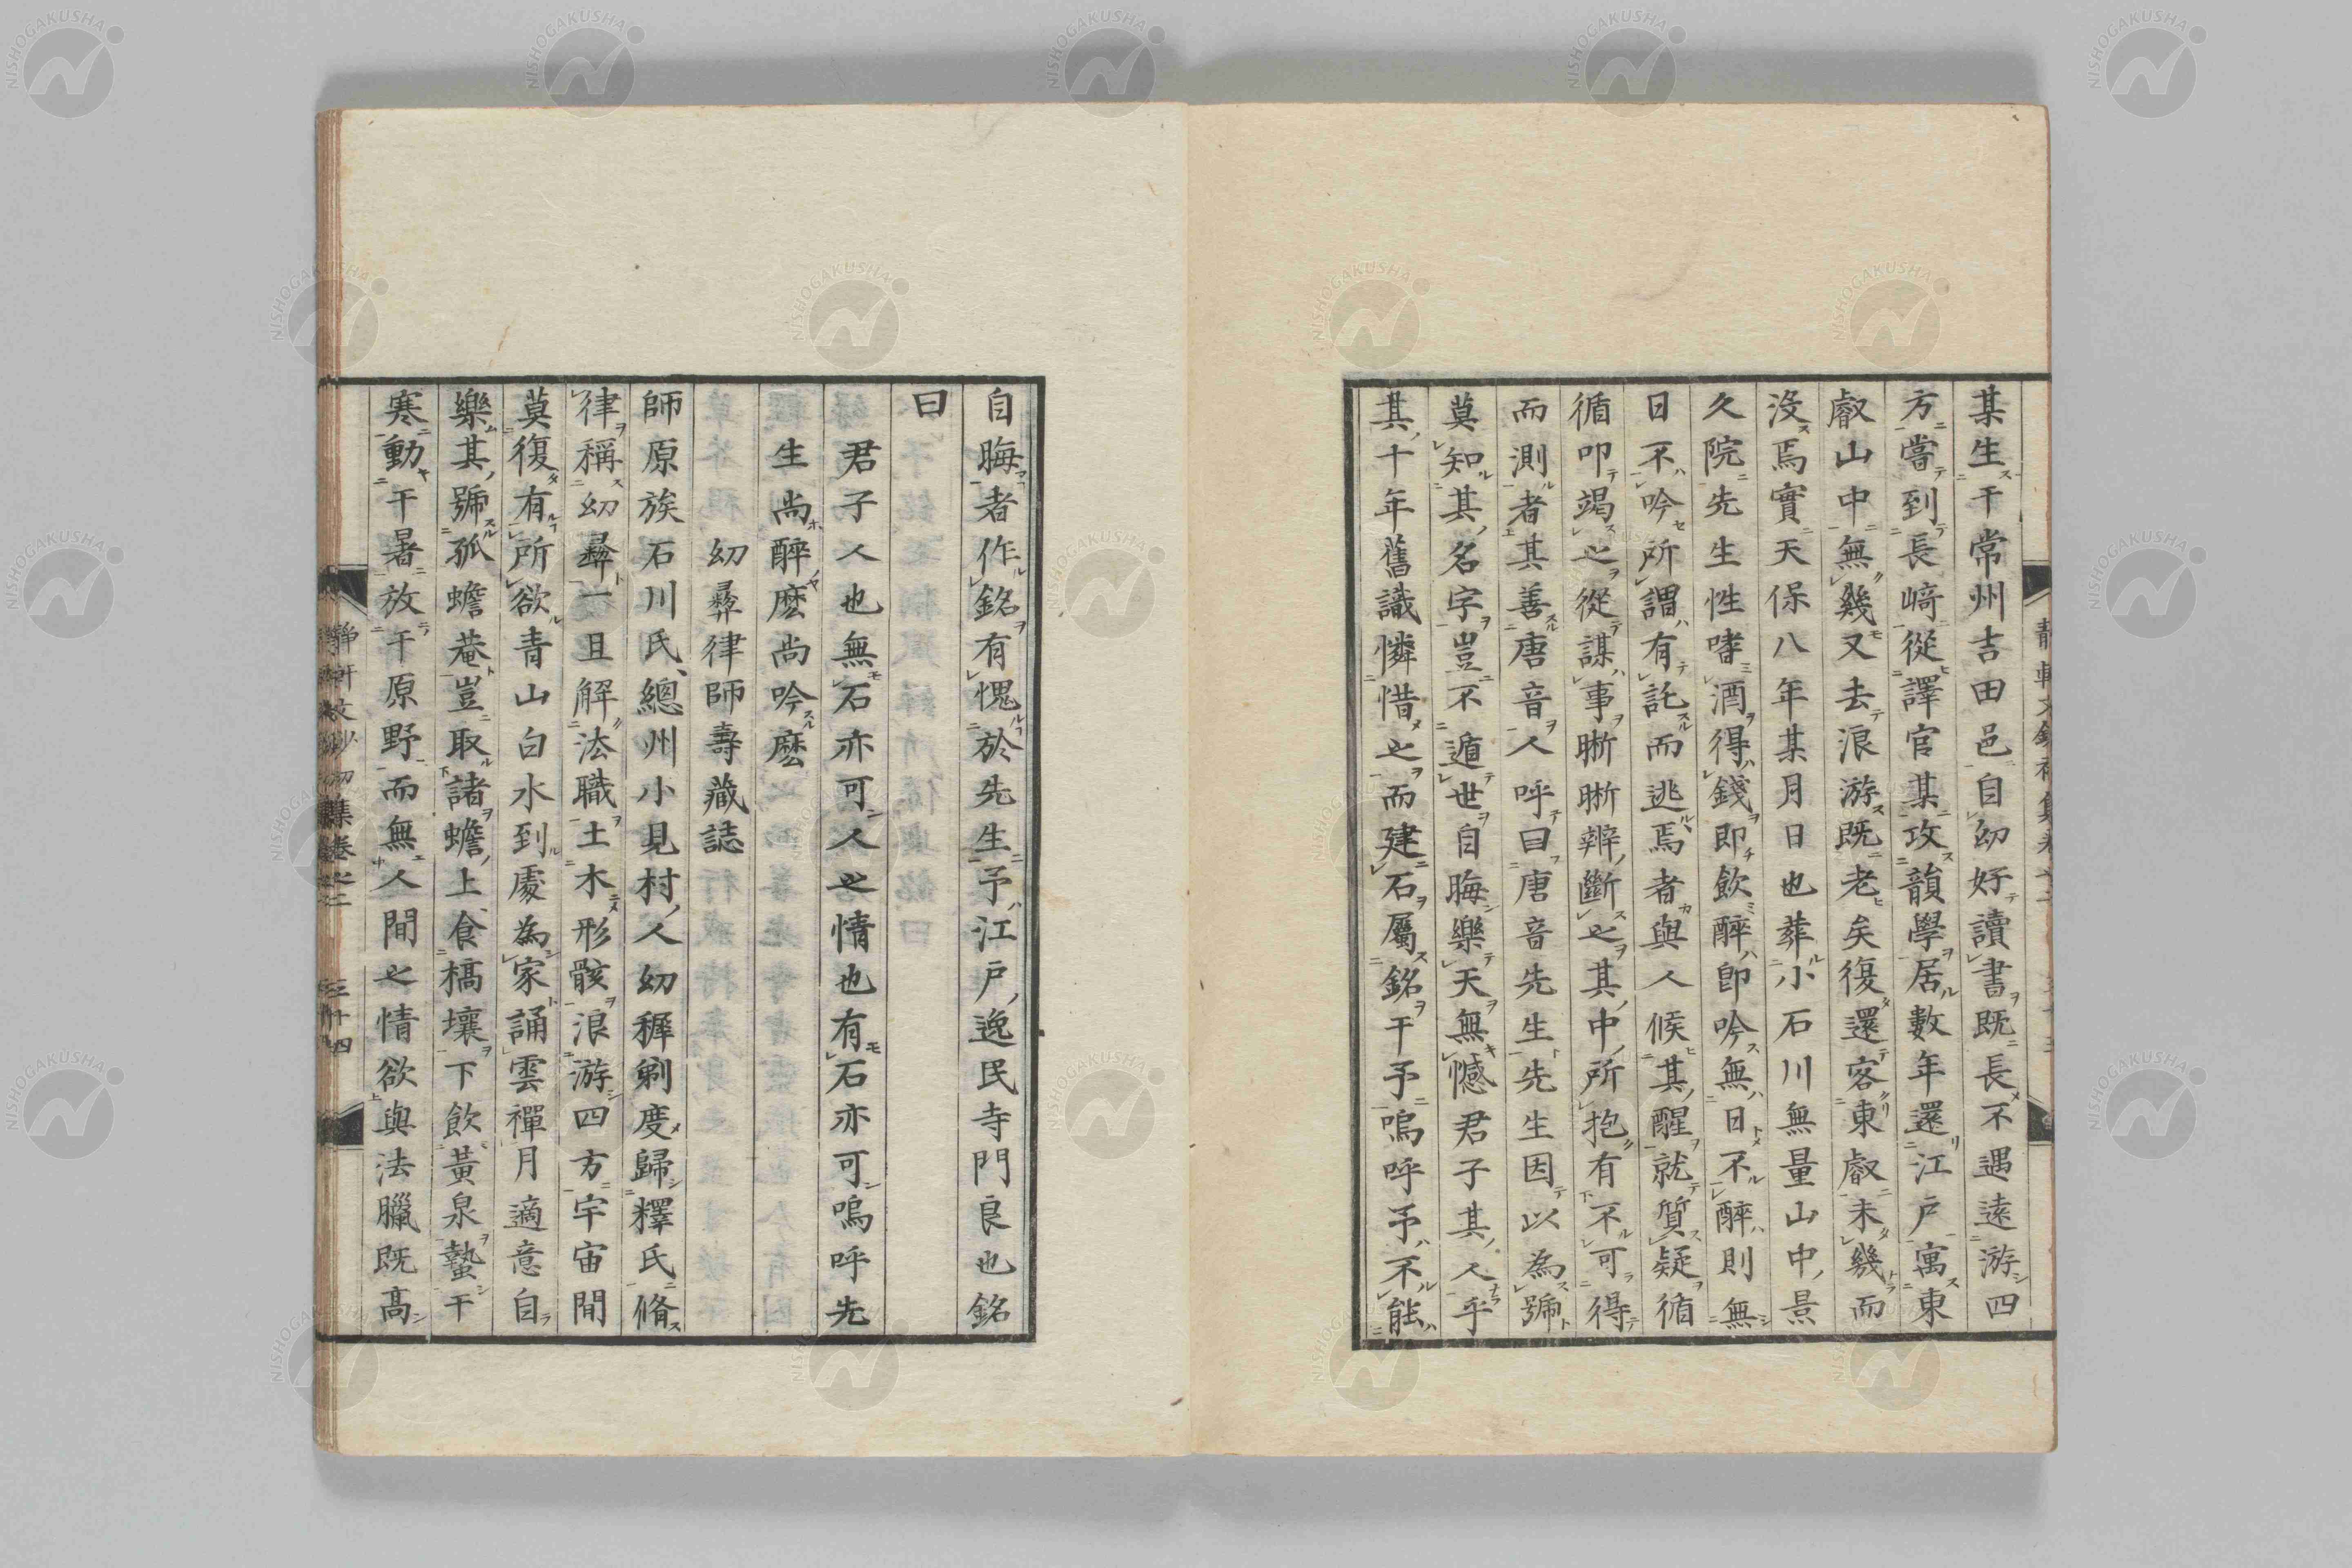 某生于常州吉田邑自幼好讀書既長不遇遠游四
方嘗到長崎從譯官某攻韻學居數年還江戶寓東
叡山中無幾又去浪游既老矣復還客東叡未幾而
沒焉實天保八年某月日也葬小石川無量山中景
久院先生性嗜酒得錢即飲醉即吟無日不醉則無
日不吟所謂有託而逃焉者與人候其醒就質疑循
循叩竭之從謀事晣晣辨斷之其中所抱有不可得
而測者其善唐音人呼曰唐音先生先生因以為號
莫知其名字豈不遁世自晦樂天無憾君子其人乎
其十年舊識憐惜之而建石屬銘于予嗚呼予不能
自晦者作銘有愧於先生予江戶逸民寺門良也銘
曰
君子人也無石亦可人之情也有石亦可嗚呼先
生尚醉麽尚吟麽
幼彛律師壽藏誌
師原族石川氏總州小見村人幼穉剃度歸釋氏脩
律稱幼彛一旦解法職土木形骸浪游四方宇宙間
莫復有所欲青山白水到處為家誦雲禪月適意自
樂其號孤蟾菴豈取諸蟾上食槁壤下飲黃泉蟄于
寒動于暑放于原野而無人間之情欲與法臘既高
靜軒文鈔初集卷之二 三十四
NISHOGAKUSHA